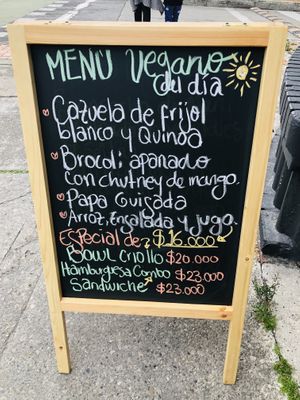 MENÚ Vegano
del día
Cazuela de frijol
blanco y Quinoa
Brocoli apanado
con chutney de mango.
Papa Guisada
Arroz, Ensalada y jugo.
ESPECIAL de $16.000
Bowl Criollo $20.000
Hamburguesa Combo $23.000
Sandwiche $23.000